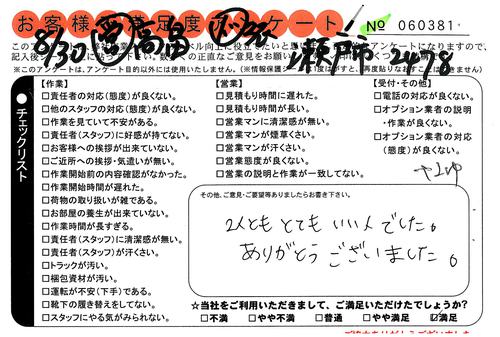 お客様満足度アンケート！ № 060381
8/30 高畠 瀬戸市 2478
【作業】
□責任者の対応(態度)が良くない。
□他のスタッフの対応(態度)が良くない。
□作業を見ていて不安がある。
□責任者(スタッフ)に好感が持てない。
□お客様への挨拶が出来ていない。
□ご近所への挨拶・気遣いが無い。
□作業開始前の内容確認がなかった。
□作業開始時間が遅れた。
□荷物の取り扱いが雑である。
□お部屋の養生が出来ていない。
□作業時間が長すぎる。
□責任者(スタッフ)に清潔感が無い。
□責任者(スタッフ)が汗くさい。
□トラックが汚い。
□梱包資材が汚い。
□運転が不安(下手)である。
□靴下の履き替えをしてない。
□スタッフにやる気がみられない。
【営業】
□見積もり時間に遅れた。
□見積もり時間が長い。
□営業マンに清潔感が無い。
□営業マンが煙草くさい。
□営業マンが汗くさい。
□営業態度が良くない。
□営業の説明が不十分である。
【受付・その他】
□電話の対応が良くない。
□オプション業者の説明
・作業が良くない。
□オプション業者の対応
(態度)が良くない。
チェックリスト
その他、ご意見・ご要望等ありましたらお書き下さい。
2人とも とても いい人 でした。
ありがとう ございました。
☆当社をご利用いただきまして、ご満足いただけたでしょうか?
□不満 □やや不満 □普通 □やや満足 ☑満足